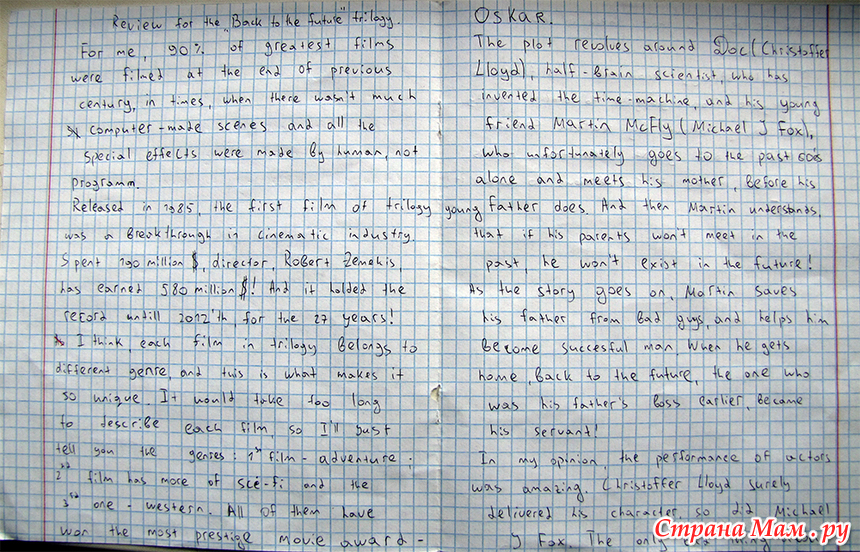 Review for the "Back to the future" trilogy.
For me, 90% of greatest films
were filmed at the end of previous
century, in times, when there wasn't much
computer-made scenes and all the
special effects were made by human, not
programm.
Released in 1985, the first film of trilogy
was a breakthrough in cinematic industry.
Spent 190 million $, director, Robert Zemekis,
has earned 580 million $! And it holded the
record untill 2012'th, for the 27 years!
I think, each film in trilogy belongs to
different genre, and this is what makes it
so unique. It would take too long
to describe each film, so I'll just
tell you the genres: 1st film - adventure;
2nd film has more of sce-fi and the
3rd one - western. All of them have
won the most prestige movie award -
Oskar.
The plot revolves around Doc (Christoffer
Lloyd), half-brain scientist, who has
invented the time-machine, and his young
friend Martin McFly (Michael J Fox),
who unfortunately goes to the past
alone and meets his mother, before his
young father does. And then Martin understands,
that if his parents won't meet in the
past, he won't exist in the future!
As the story goes on, Martin saves
his father from bad guys, and helps him
become succesful man. When he gets
home, back to the future, the one who
was his father's boss earlier, became
his servant!
In my opinion, the performance of actors
was amazing. Christoffer Lloyd surely
delivered his character, so did Michael
J Fox. The only
Страна Мам.ру